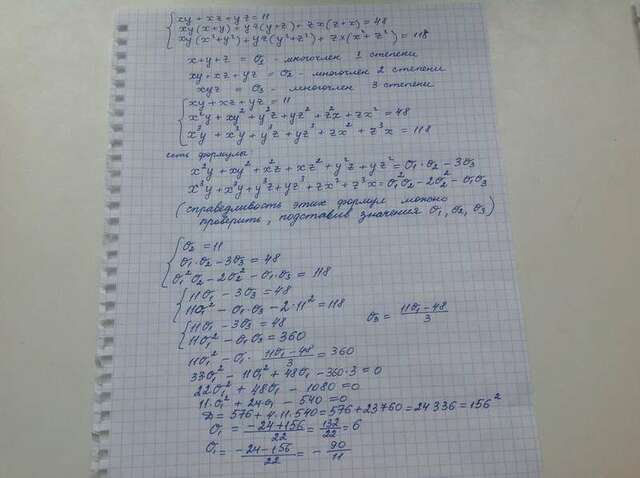 xy + xz + yz = 11
xy(x+y) + yz(y+z) + zx(z+x) = 48
xy(x²+y²) + yz(y²+z²) + zx(x²+z²) = 118
x+y+z = σ₁ - многочлен 1 степени
xy + xz + yz = σ₂ - многочлен 2 степени
xyz = σ₃ - многочлен 3 степени
xy + xz + yz = 11
x²y + xy² + y²z + yz² + z²x + zx² = 48
x³y + x³y + y³z + yz³ + zx³ + z³x = 118
есть формулы
x²y + xy² + x²z + xz² + y²z + yz² = σ₁·σ₂ - 3σ₃
x³y + x³y + y³z + yz³ + zx³ + z³x = σ₁²σ₂ - 2σ₂² - σ₁σ₃
(справедливость этих формул можно
проверить, подставив значения σ₁, σ₂, σ₃)
σ₂ = 11
σ₁·σ₂ - 3σ₃ = 48
σ₁²σ₂ - 2σ₂² - σ₁·σ₃ = 118
11σ₁ - 3σ₃ = 48
11σ₁² - σ₁·σ₃ - 2·11² = 118
11σ₁ - 3σ₃ = 48 σ₃ = (11σ₁ - 48)/3
11σ₁² - σ₁σ₃ = 360
11σ₁² - σ₁· (11σ₁ - 48)/3 = 360
33σ₁² - 11σ₁² + 48σ₁ - 360·3 = 0
22σ₁² + 48σ₁ - 1080 = 0
11·σ₁² + 24σ₁ - 540 = 0
D = 576 + 4·11·540 = 576 + 23760 = 24336 = 156²
σ₁ = (-24+156)/22 = 132/22 = 6
σ₁ = (-24-156)/22 = - 90/11